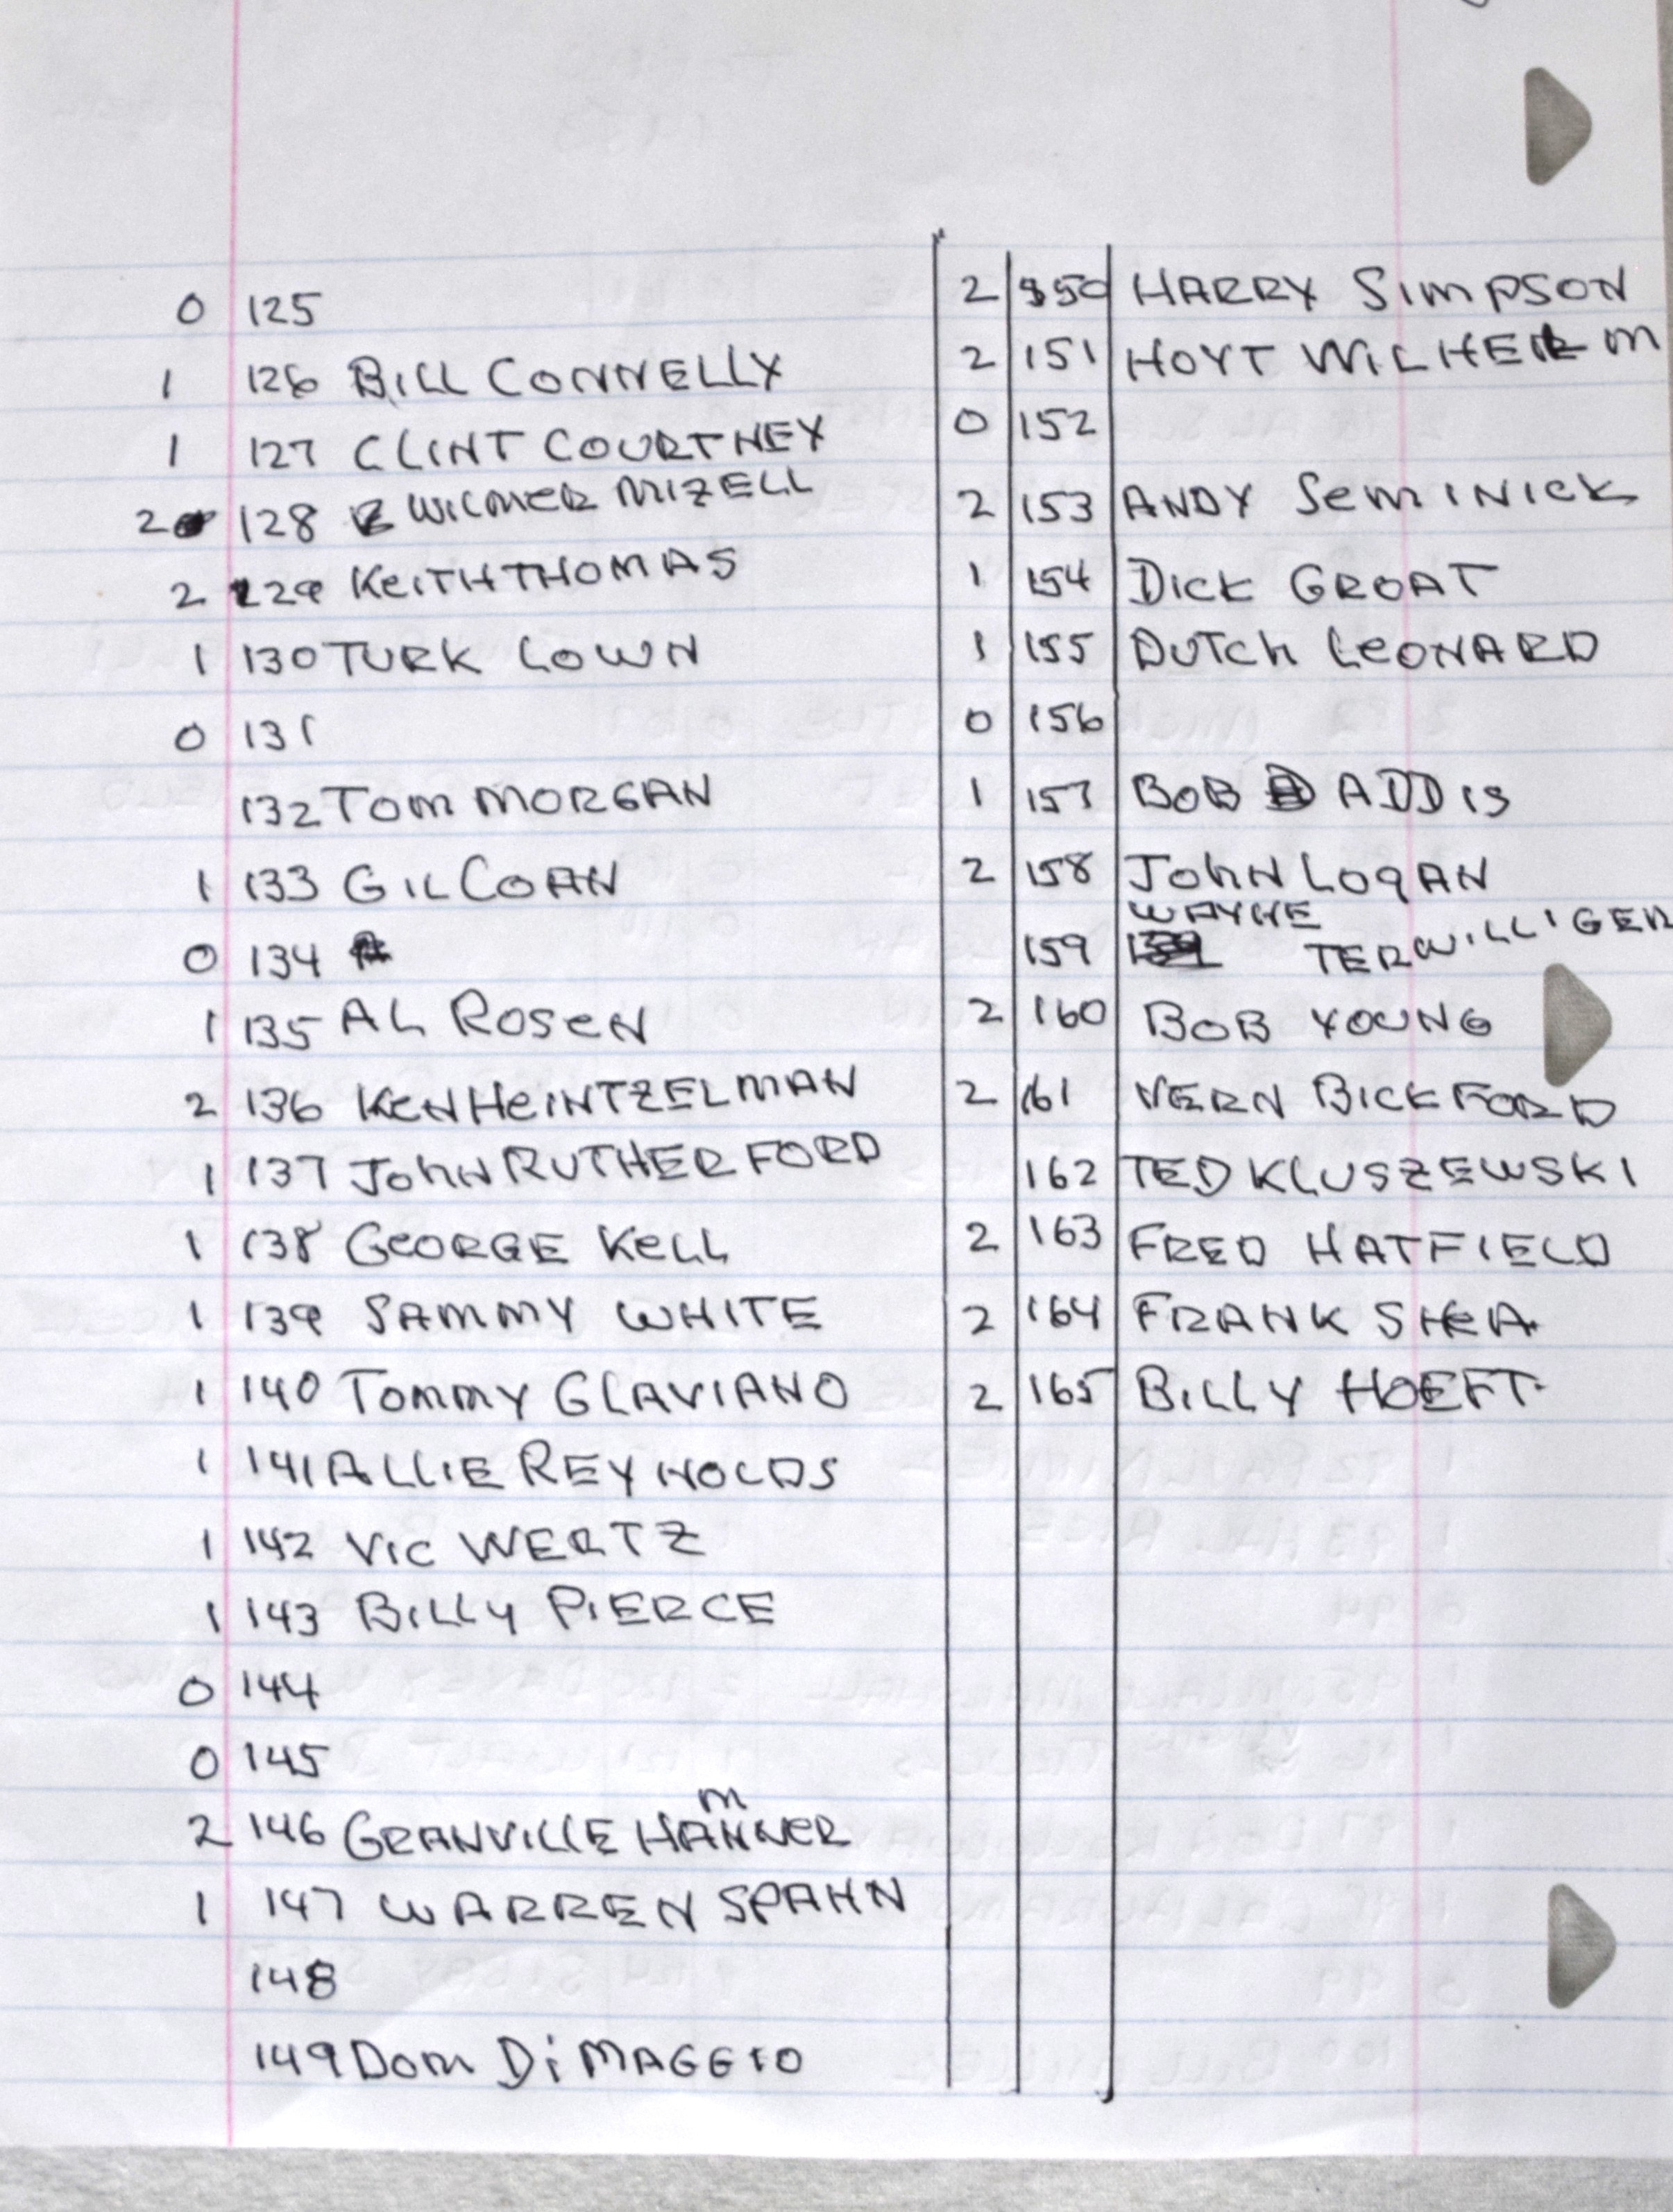 0 125
1 126 BILL CONNELLY
1 127 CLINT COURTNEY
2 128 WILMER MIZELL
2 129 KEITH THOMAS
1 130 TURK LOWN
0 131
132 TOM MORGAN
1 133 GIL COAN
0 134
1 135 AL ROSEN
2 136 KEN HEINTZELMAN
1 137 JOHN RUTHERFORD
1 138 GEORGE KELL
1 139 SAMMY WHITE
1 140 TOMMY GLAVIANO
1 141 ALLIE REYNOLDS
1 142 VIC WERTZ
1 143 BILLY PIERCE
0 144
0 145
m
2 146 GRANVILLE HANNER
1 147 WARREN SPAHN
148
149 DOM DiMAGGIO
2 150 HARRY SIMPSON
2 151 HOYT WILHELM
0 152
2 153 ANDY SEMINICK
1 154 DICK GROAT
1 155 DUTCH LEONARD
0 156
1 157 BOB ADDIS
2 158 JOHN LOGAN
WAYNE
159 TERWILLIGER
2 160 BOB YOUNG
2 161 VERN BICKFORD
162 TED KLUSZEWSKI
2 163 FRED HATFIELD
2 164 FRANK SHEA
2 165 BILLY HOEFT